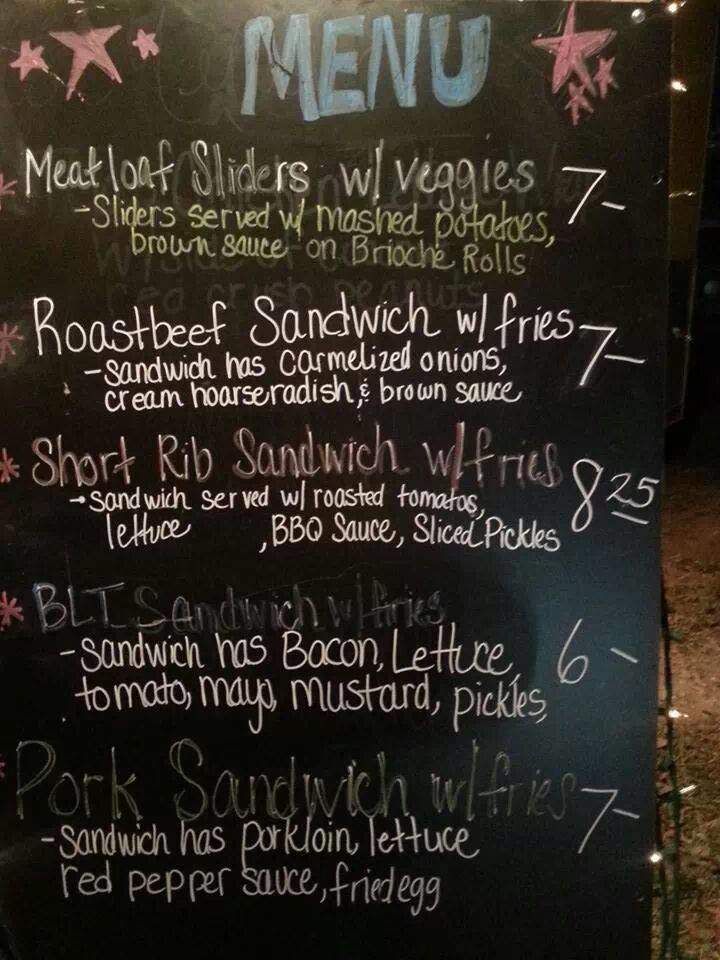 MENU
Meatloaf Sliders w/ veggies 7-
-Sliders served w/ mashed potatoes,
brown sauce on Brioche Rolls
Roastbeef Sandwich w/ fries 7-
-Sandwich has carmelized onions,
cream hoarseradish, & brown sauce
Short Rib Sandwich w/ fries 8 25
-Sandwich served w/ roasted tomatos,
lettuce , BBQ Sauce, Sliced Pickles
BLT Sandwich w/ fries
-Sandwich has Bacon, Lettuce, 6-
tomato, mayo, mustard, pickles,
Pork Sandwich w/ fries 7-
-Sandwich has porkloin, lettuce
red pepper sauce, fried egg